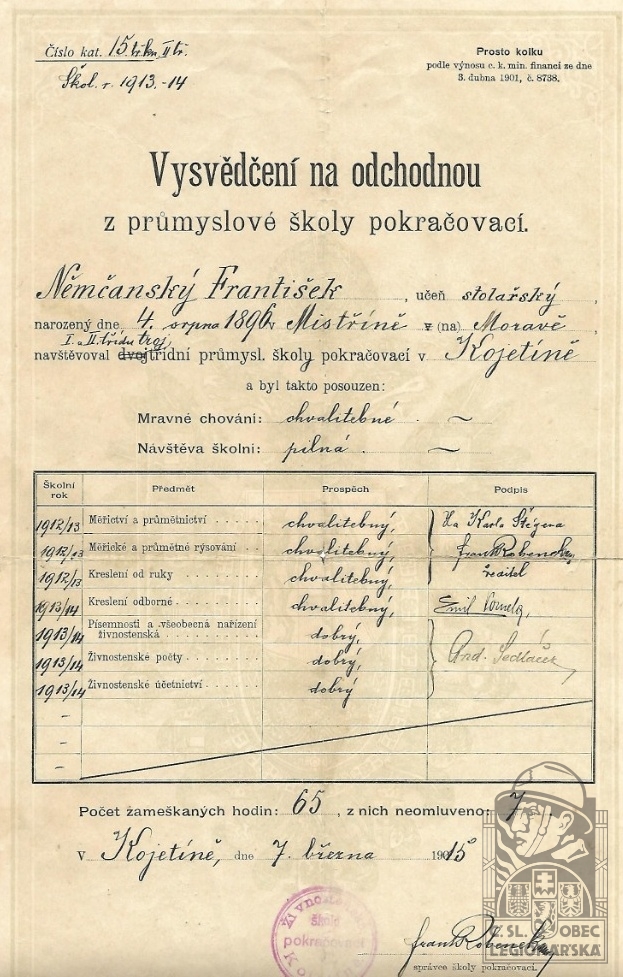 Číslo kat. 15 II tř.
Škol. r. 1913-14
Prosto kolku
podle výnosu c. k. min. financí ze dne
3. dubna 1901, č. 8738.
Vysvědčení na odchodnou
z průmyslové školy pokračovací.
Němčanský František, učeň stolařský,
narozený dne 4. srpna 1896 v Mistříně z (na) Moravě
I. a II. třídu troj
navštěvoval dvojtřídní průmysl. školy pokračovací v Kojetíně
a byl takto posouzen:
Mravné chování: chvalitebné. ~
Návštěva školní: pilná. ~
Školní rok Předmět Prospěch Podpis
1912/13 Měřictví a průmětnictví chvalitebný, Za Karla Štégera
1912/13 Měřické a průmětné rýsování chvalitebný, Frant. Robenek,
1912/13 Kreslení od ruky chvalitebný, ředitel
1913/14 Kreslení odborné chvalitebný, Emil
1913/14 Písemnosti a všeobecná nařízení živnostenská dobrý,
1913/14 Živnostenské počty dobrý, And. Sedláček
1913/14 Živnostenské účetnictví dobrý
Počet zameškaných hodin: 65, z nich neomluveno: 7.
V Kojetíně, dne 7. března 1915
Živnost
škola
pokračovací
Frant. Robenek,
správce školy pokračovací.
ČSL. OBEC
LEGIONÁŘSKÁ